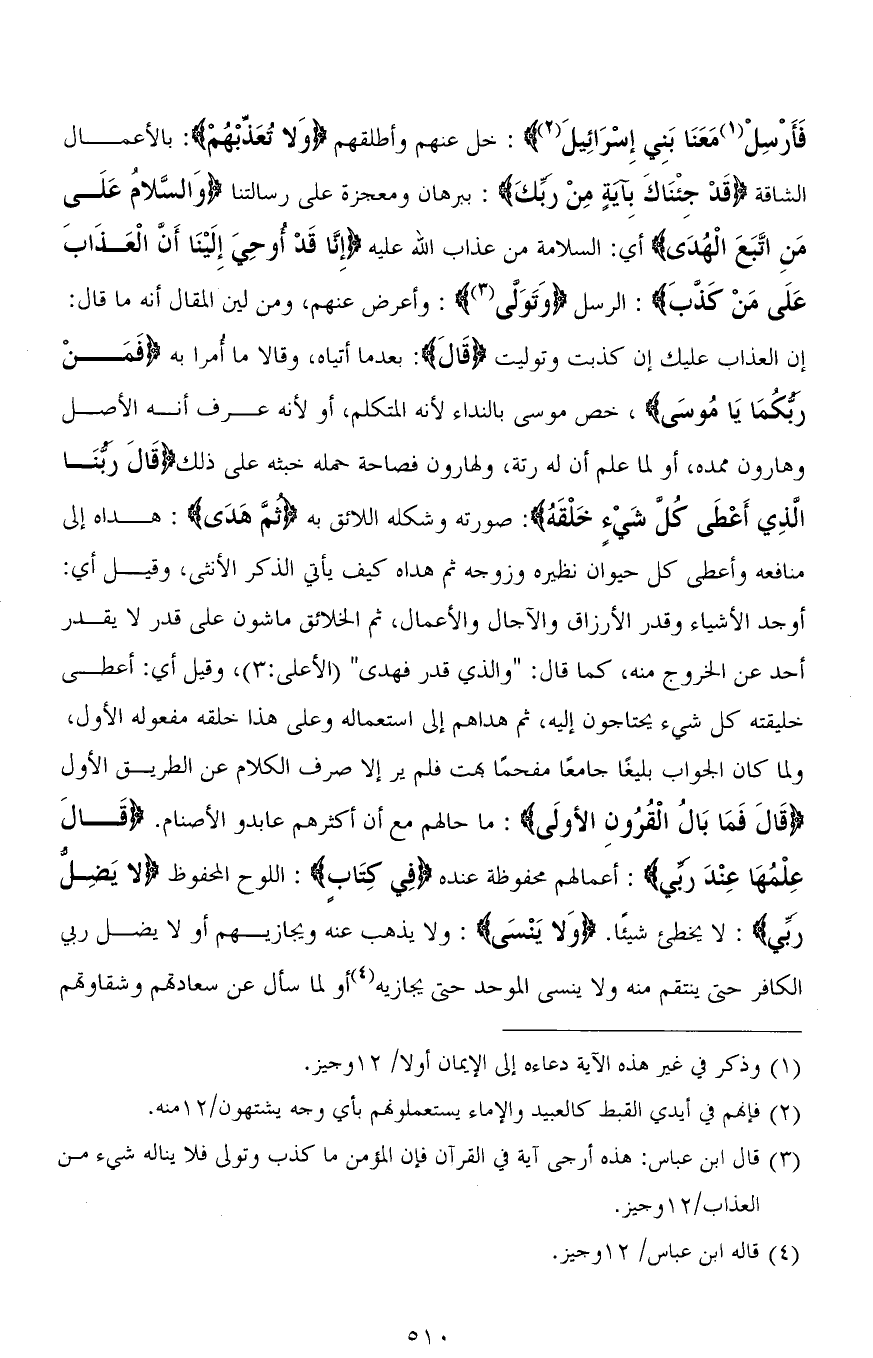 فَأَرْسِلْ(١) مَعَنَا بَنِي إِسْرَائِيلَ(٢)﴾ : خل عنهم وأطلقهم ﴿وَلا تُعَذِّبْهُمْ﴾: بالأعمـــــال
الشاقة ﴿قَدْ جِئْنَاكَ بِآيَةٍ مِنْ رَبِّكَ﴾ : ببرهان ومعجزة على رسالتنا ﴿وَالسَّلامُ عَلَـــى
مَنِ اتَّبَعَ الْهُدَى﴾ أي: السلامة من عذاب الله عليه ﴿إِنَّا قَدْ أُوحِيَ إِلَيْنَا أَنَّ الْعَـــذَابَ
عَلَى مَنْ كَذَّبَ﴾ : الرسل ﴿وَتَوَلَّى(٣)﴾ : وأعرض عنهم، ومن لين المقال أنه ما قال:
إن العذاب عليك إن كذبت وتوليت ﴿قَالَ﴾: بعدما أتياه، وقالا ما أُمرا به ﴿فَمَـــــنْ
رَبُّكُمَا يَا مُوسَى﴾ ، خص موسى بالنداء لأنه المتكلم، أو لأنه عـــرف أنـــه الأصـــل
وهارون ممده، أو لما علم أن له رتة، ولهارون فصاحة حمله خبثه على ذلك﴿قَالَ رَبُّنَـــا
الَّذِي أَعْطَى كُلَّ شَيْءٍ خَلْقَهُ﴾: صورته وشكله اللائق به ﴿ثُمَّ هَدَى﴾ : هـــداه إلى
منافعه وأعطى كل حيوان نظيره وزوجه ثم هداه كيف يأتي الذكر الأنثى، وقيـــل أي:
أوجد الأشياء وقدر الأرزاق والآجال والأعمال، ثم الخلائق ماشون على قدر لا يقـــدر
أحد عن الخروج منه، كما قال: "والذي قدر فهدى" (الأعلى:٣)، وقيل أي: أعطـــى
خليقته كل شيء يحتاجون إليه، ثم هداهم إلى استعماله وعلى هذا خلقه مفعوله الأول،
ولما كان الجواب بليغًا جامعًا مفحمًا بهت فلم ير إلا صرف الكلام عن الطريـــق الأول
﴿قَالَ فَمَا بَالُ الْقُرُونِ الأُولَى﴾ : ما حالهم مع أن أكثرهم عابدو الأصنام. ﴿قَـــالَ
عِلْمُهَا عِنْدَ رَبِّي﴾ : أعمالهم محفوظة عنده ﴿فِي كِتَابٍ﴾ : اللوح المحفوظ ﴿لا يَضِـــلُّ
رَبِّي﴾ : لا يخطئ شيئًا. ﴿وَلا يَنْسَى﴾ : ولا يذهب عنه ويجازيـــهم أو لا يضـــل ربي
الكافر حتى ينتقم منه ولا ينسى الموحد حتى يجازيه(٤)أو لما سأل عن سعادتهم وشقاوتهم
(١) وذكر في غير هذه الآية دعاءه إلى الإيمان أولا/ ١٢وجيز.
(٢) فإنهم في أيدي القبط كالعبيد والإماء يستعملونهم بأي وجه يشتهون/١٢منه.
(٣) قال ابن عباس: هذه أرجى آية في القرآن فإن المؤمن ما كذب وتولى فلا يناله شيء مـــن
العذاب/١٢وجيز.
(٤) قاله ابن عباس/ ١٢وجيز.
٥١٠